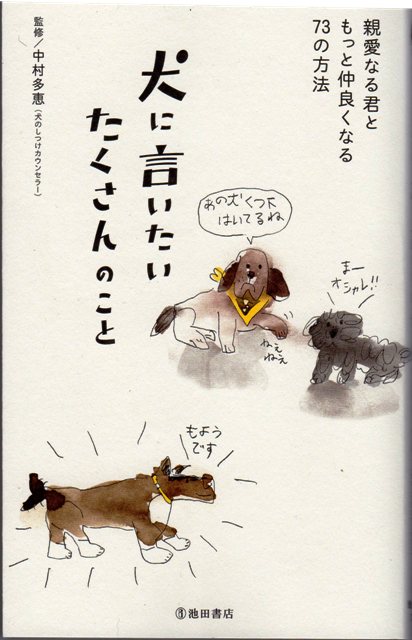 親愛なる君と
もっと仲良くなる
73の方法
犬に言いたい
たくさんのこと
監修／中村多恵（犬のしつけカウンセラー）
あの犬くつ下
はいてるね
ねぇ
ねぇ
まー
オシャレ!!
もよう
です
池田書店